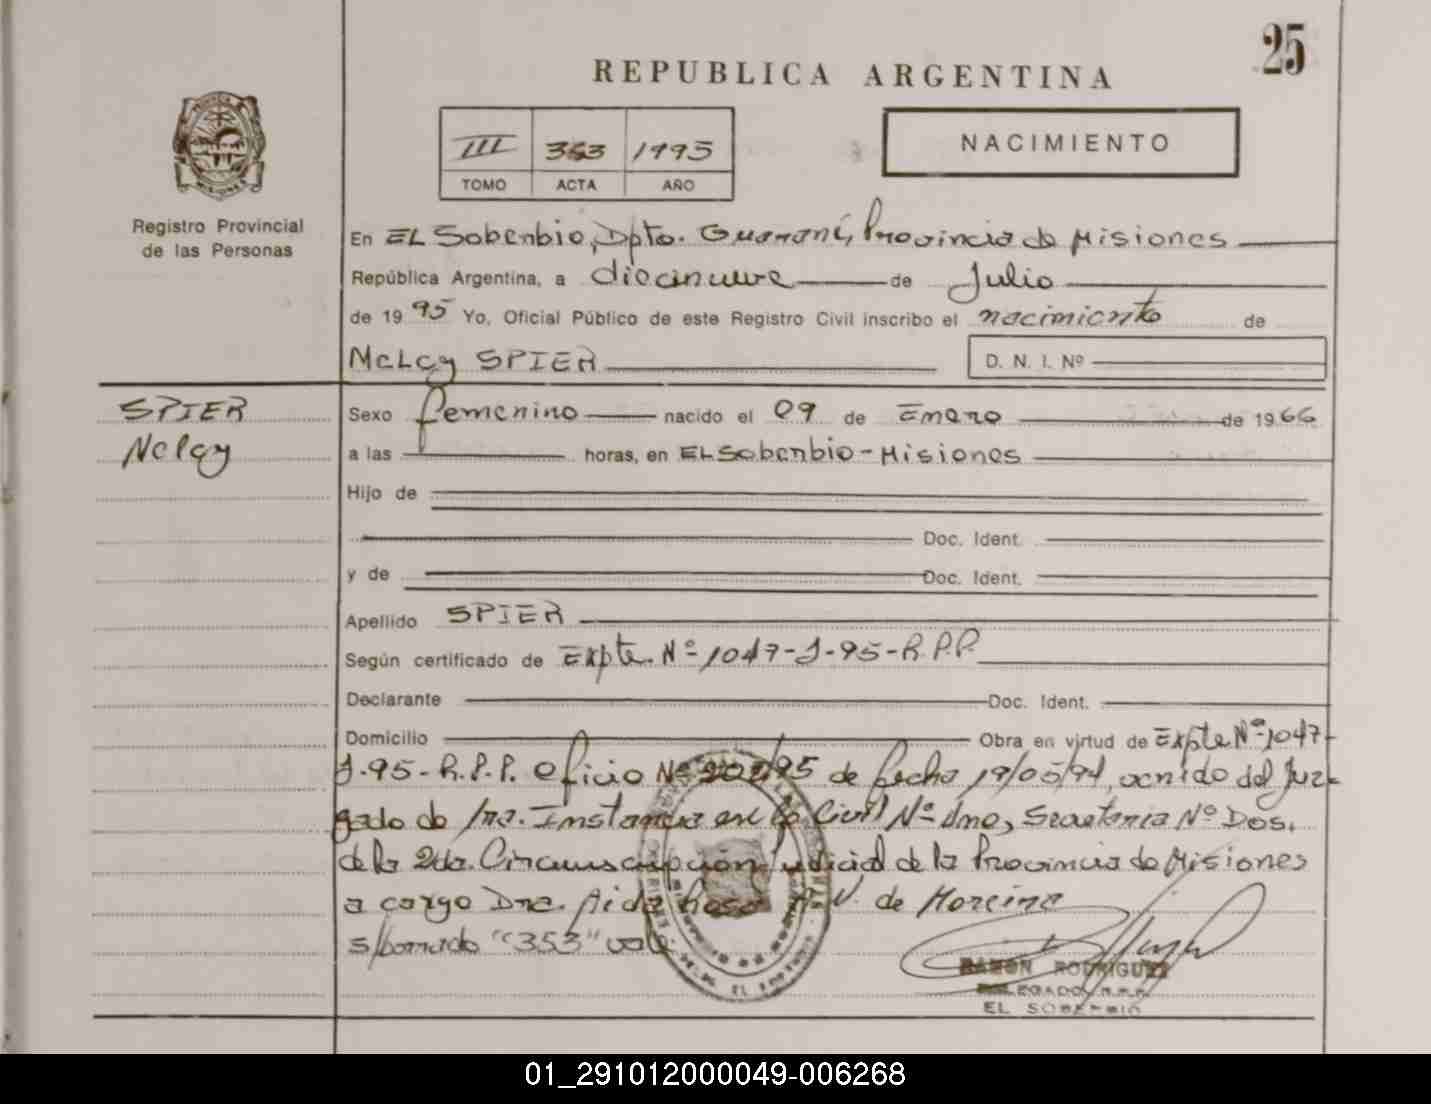 25
REPUBLICA ARGENTINA
III 353 1995
TOMO ACTA AÑO
NACIMIENTO
Registro Provincial
de las Personas
En EL Soberbio, Dpto. Guaraní, Provincia de Misiones
República Argentina, a diecinueve de Julio
de 1995 Yo, Oficial Público de este Registro Civil inscribo el nacimiento de
Nelcy SPIER D. N. I. Nº
SPIER
Nelcy
Sexo femenino nacido el 09 de Enero de 1966
a las horas, en EL Soberbio - Misiones
Hijo de
Doc. Ident.
y de Doc. Ident.
Apellido SPIER
Según certificado de Expte. Nº 1047-J-95-R.P.P.
Declarante Doc. Ident.
Domicilio Obra en virtud de Expte Nº 1047-
J-95-R.P.P. Oficio Nº /95 de fecha 19/05/94, venido del Juz-
gado de 1ra. Instancia en lo Civil Nº Uno, Secretaria Nº Dos.
de la 2da. Circunscripción Judicial de la Provincia de Misiones
a cargo Dra. Aida Rosa V. de Moreira
s/borrado "353" vale
RAMON RODRIGUEZ
DELEGADO R.P.P.
EL SOBERBIO
01_291012000049-006268